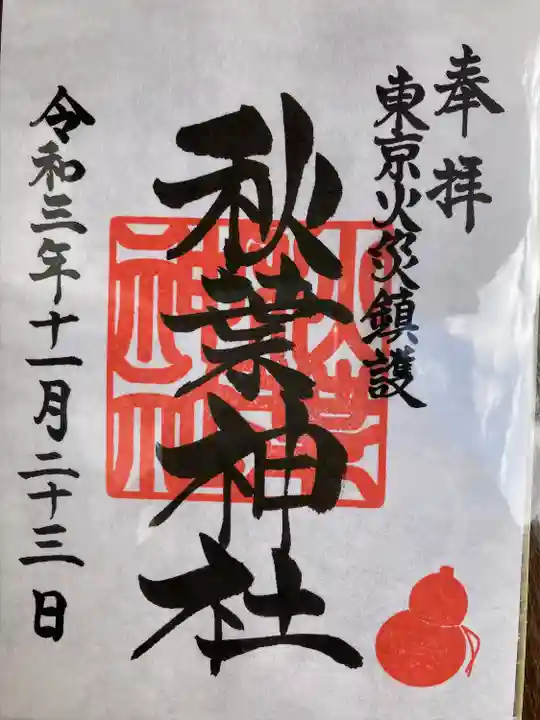 奉拝
東京火災鎮護
秋葉神社
令和三年十一月二十三日